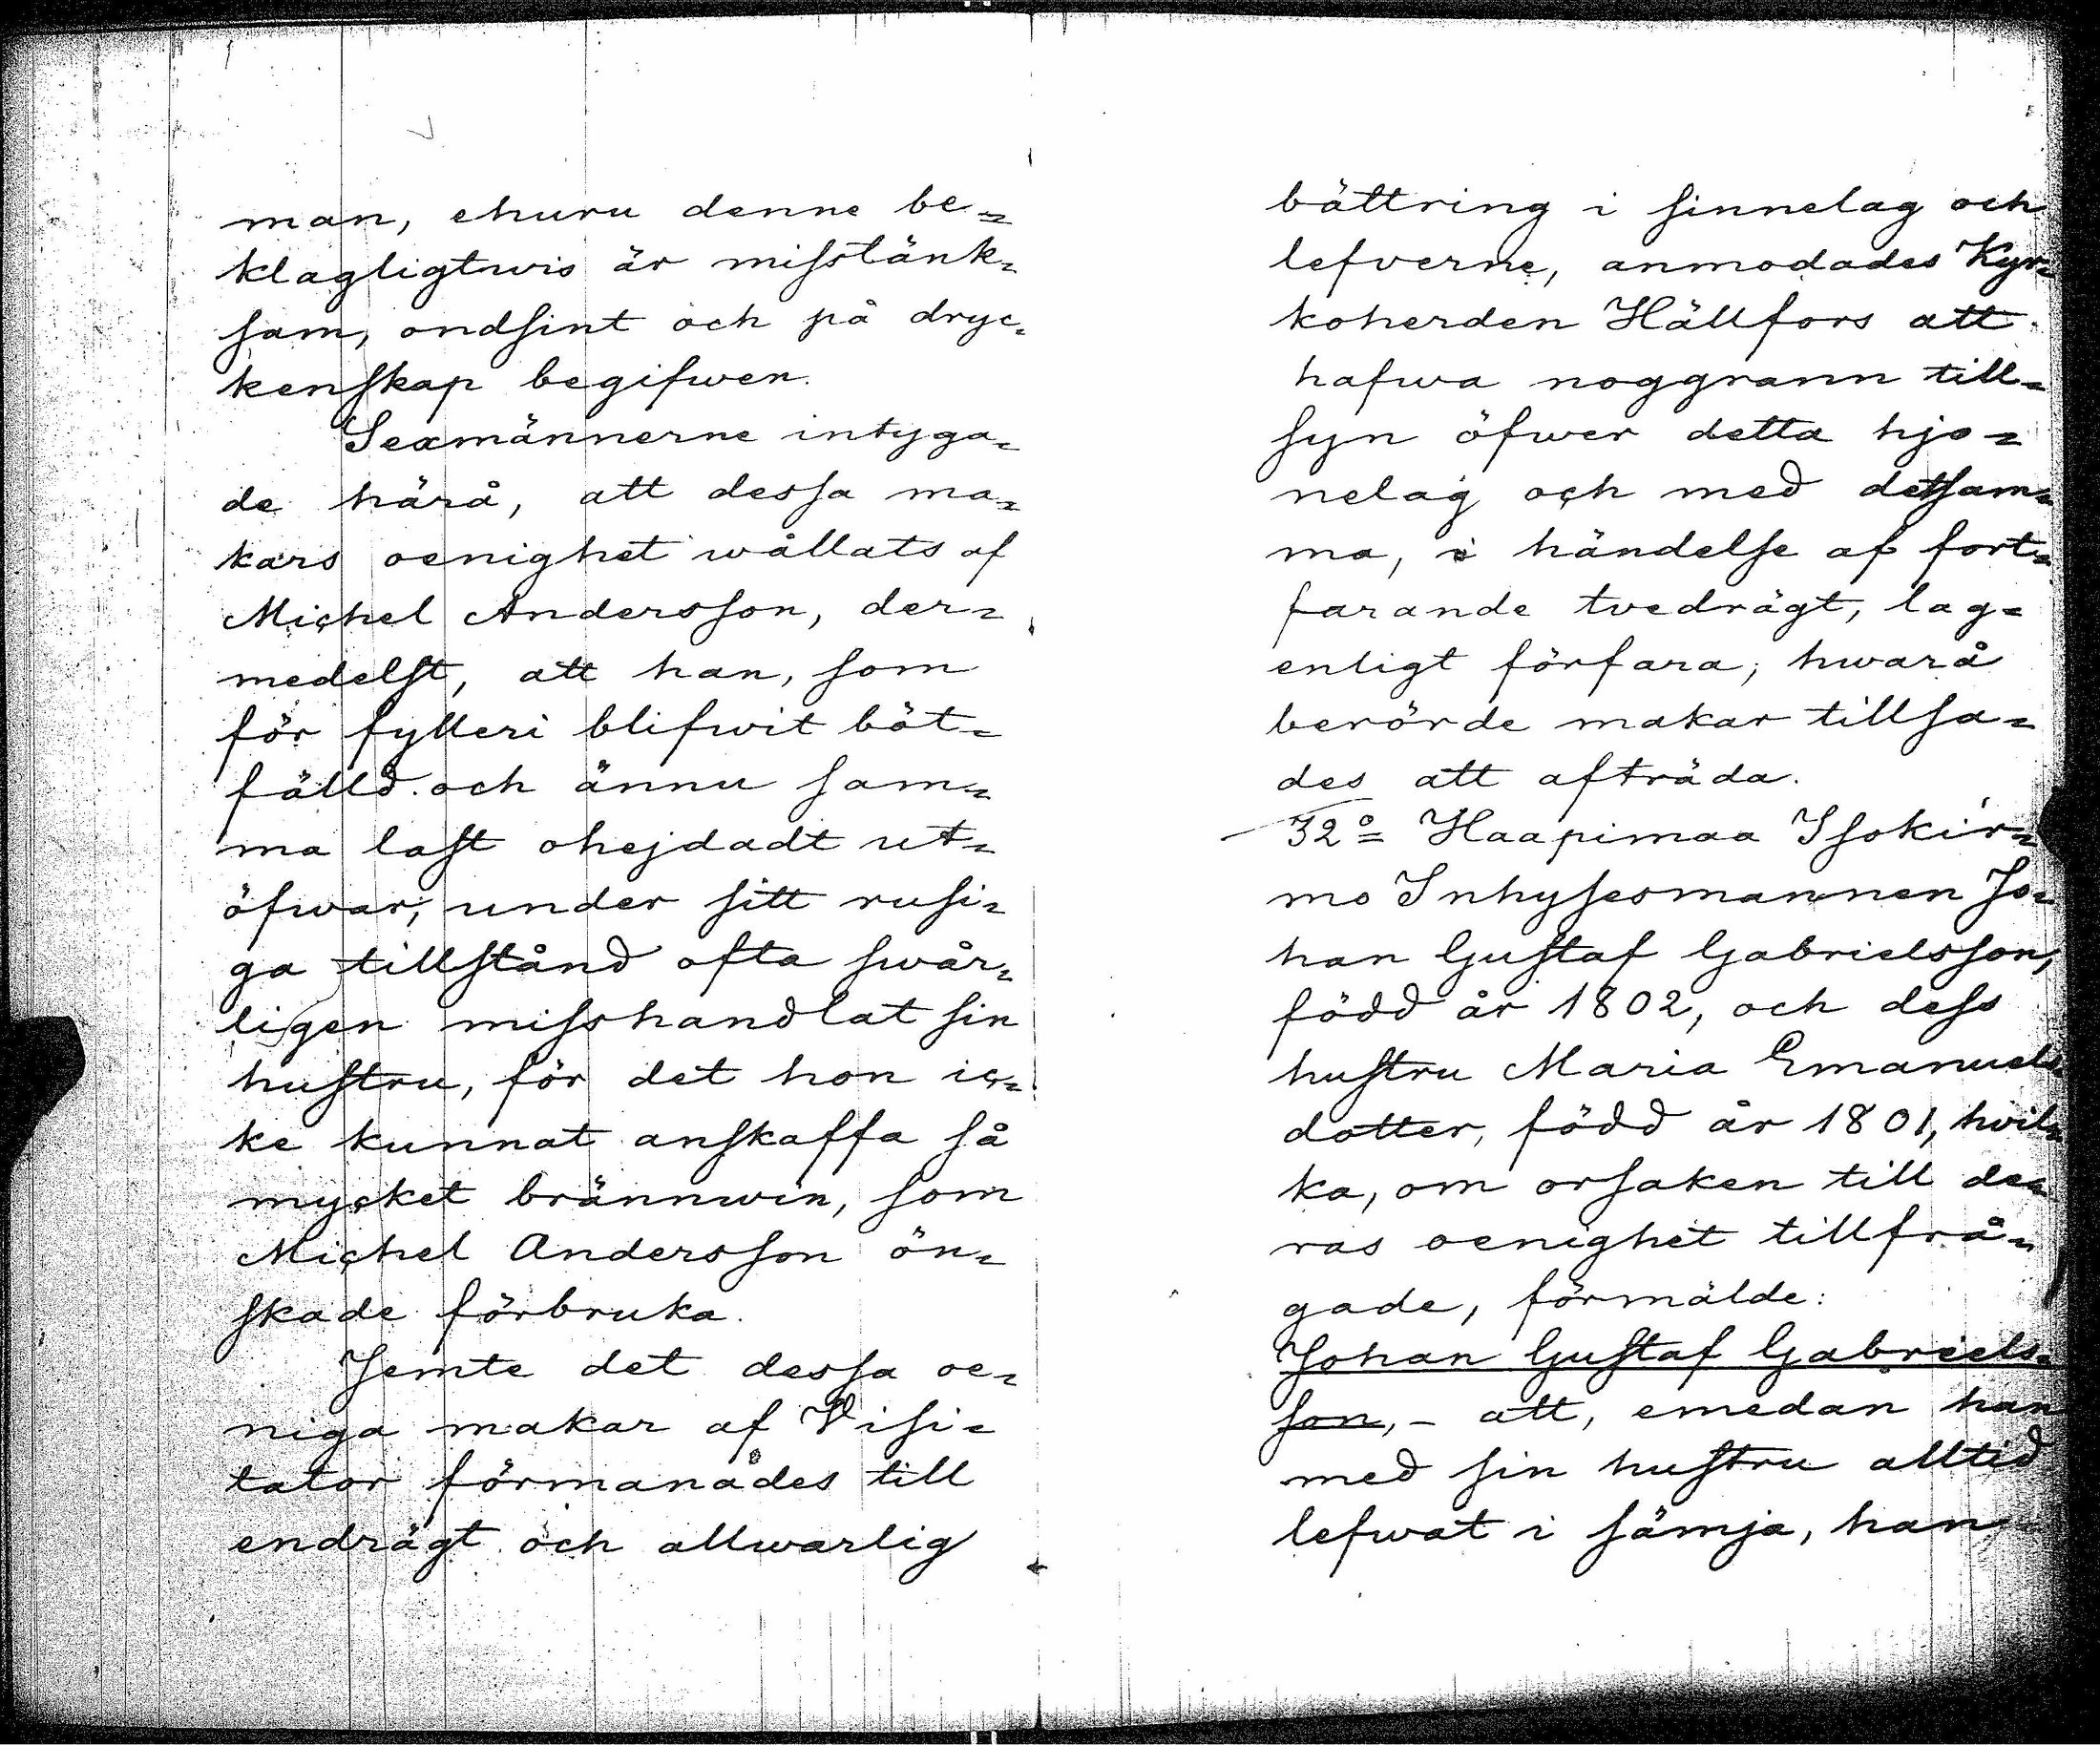 man, ehuru denne be=
klagligtwis är misstänk=
sam, ondsint och på dryc=
kenskap begifwen.
Sexmännerne intyga=
de härå, att dessa ma=
kars oenighet wållats af
Michel Andersson, der=
medelst, att han, som
för fylleri blifwit böt=
fälld och ännu sam=
ma last ohejdadt ut=
öfwar, under sitt rusi=
ga tillstånd ofta swår=
ligen misshandlat sin
hustru, för det hon ic=
ke kunnat anskaffa så
mycket brännwin, som
Michel Andersson ön=
skade förbruka.
Jemte det dessa oe=
niga makar af Visi=
tator förmanades till
endrägt och allwarlig
bättring i sinnelag och
lefverne, anmodades Kyr=
koherden Hällfors att
hafwa noggrann till=
syn öfwer detta hjo=
nelag och med detsam=
ma, i händelse af fort=
farande tvedrägt, lag=
enligt förfara; hwarå
berörde makar tillsa=
des att afträda.
32o Haapimaa Isokir=
mo Inhysesmannen Jo=
han Gustaf Gabrielsson,
född år 1802, och dess
hustru Maria Emanuels=
dotter, född år 1801, hvil=
ka, om orsaken till de=
ras oenighet tillfrå=
gade, förmälde:
Johan Gustaf Gabriels=
son, - att, emedan han
med sin hustru alltid
lefwat i sämja, han